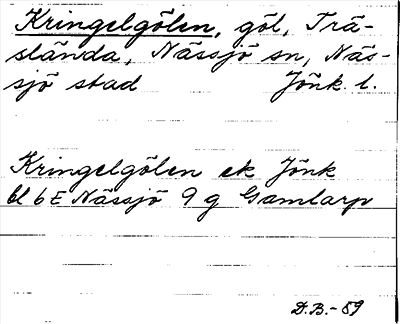 Kringelgölen, göl, Trä-
slända, Nässjö sn, Näs-
sjö stad Jönk. l.
Kringelgölen ek Jönk
bl 6E Nässjö 9 g Gamlarp
D.B.-59